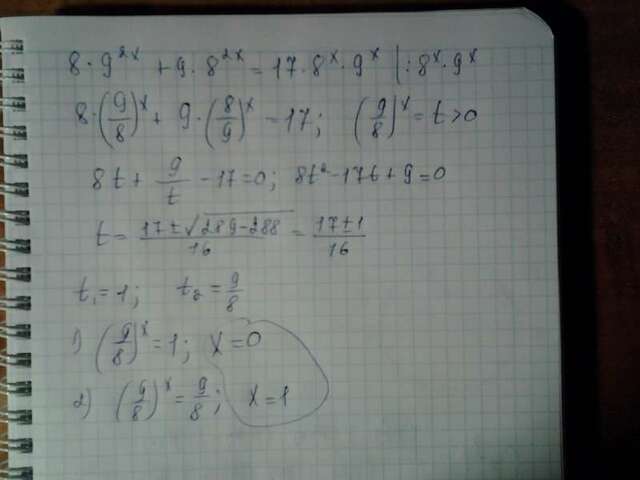 8·9^{2x} + 9·8^{2x} = 17·8^x·9^x |:8^x·9^x
8·(9/8)^x + 9·(8/9)^x = 17; (9/8)^x = t > 0
8t + 9/t - 17 = 0; 8t² - 17t + 9 = 0
t = (17 ± √(289 - 288))/16 = (17 ± 1)/16
t₁ = 1; t₂ = 9/8
1) (9/8)^x = 1; x = 0
2) (9/8)^x = 9/8; x = 1